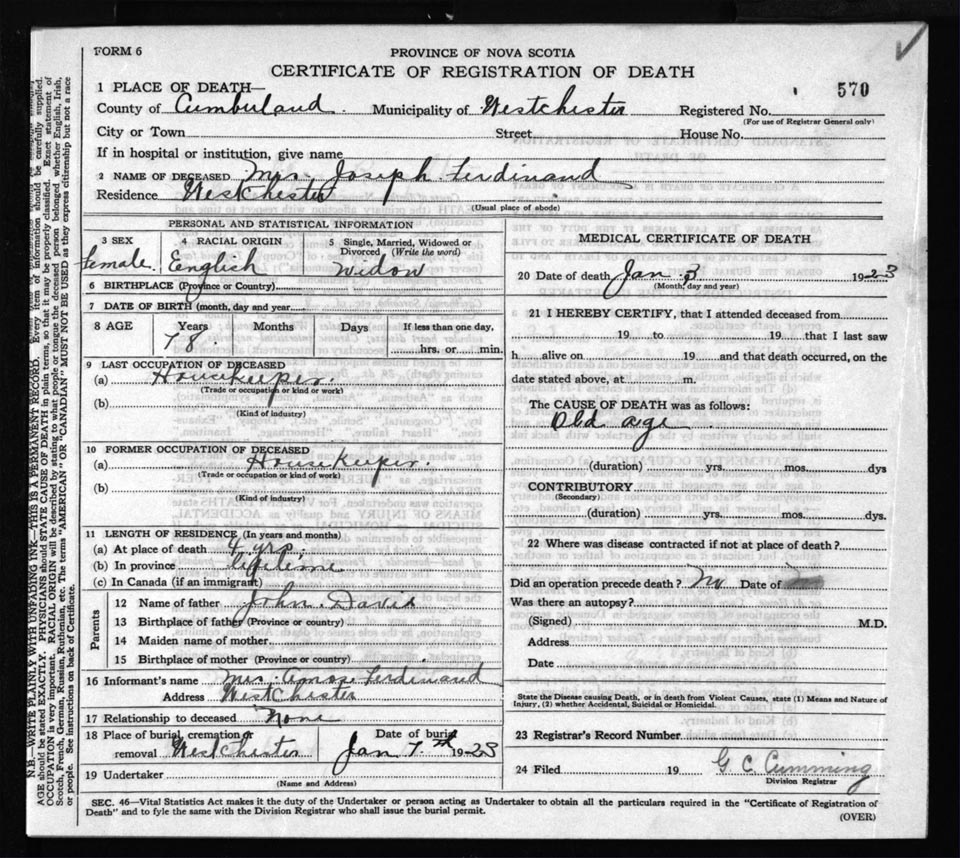 FORM 6
PROVINCE OF NOVA SCOTIA
CERTIFICATE OF REGISTRATION OF DEATH
1 PLACE OF DEATH—
570
County of Cumberland. Municipality of Westchester Registered No.
(For use of Registrar General only)
City or Town Street House No.
If in hospital or institution, give name
2 NAME OF DECEASED Mrs. Joseph Ferdinand
Residence Westchester
(Usual place of abode)
PERSONAL AND STATISTICAL INFORMATION
3 SEX
female.
4 RACIAL ORIGIN
English
5 Single, Married, Widowed or
Divorced (Write the word)
Widow
6 BIRTHPLACE (Province or Country)
7 DATE OF BIRTH (month, day and year)
8 AGE Years Months Days If less than one day,
78. hrs. or min.
9 LAST OCCUPATION OF DECEASED
(a) Housekeeper.
(Trade or occupation or kind of work)
(b)
(Kind of industry)
10 FORMER OCCUPATION OF DECEASED
(a) Housekeeper.
(Trade or occupation or kind of work)
(b)
(Kind of industry)
11 LENGTH OF RESIDENCE (In years and months)
(a) At place of death 4 yrs.
(b) In province lifetime
(c) In Canada (if an immigrant)
Parents
12 Name of father John Davis
13 Birthplace of father (Province or country)
14 Maiden name of mother
15 Birthplace of mother (Province or country)
16 Informant's name Mrs Amos Ferdinand
Address Westchester
17 Relationship to deceased None
18 Place of burial, cremation or
removal Westchester
Date of burial
Jan 7.th 1923
19 Undertaker
(Name and Address)
MEDICAL CERTIFICATE OF DEATH
20 Date of death Jan. 3 1923
(Month, day and year)
21 I HEREBY CERTIFY, that I attended deceased from
19 to 19 that I last saw
h alive on 19 and that death occurred, on the
date stated above, at m.
The CAUSE OF DEATH was as follows:
Old age
(duration) yrs. mos. dys
CONTRIBUTORY
(Secondary)
(duration) yrs. mos. dys.
22 Where was disease contracted if not at place of death?
Did an operation precede death? No Date of
Was there an autopsy?
(Signed) M.D.
Address
Date
State the Disease causing Death, or in death from Violent Causes, state (1) Means and Nature of
Injury, (2) whether Accidental, Suicidal or Homicidal.
23 Registrar's Record Number
24 Filed 19 G C Cumming
Division Registrar
SEC. 46—Vital Statistics Act makes it the duty of the Undertaker or person acting as Undertaker to obtain all the particulars required in the "Certificate of Registration of
Death" and to fyle the same with the Division Registrar who shall issue the burial permit.
(OVER)
N.B.—WRITE PLAINLY WITH UNFADING INK—THIS IS A PERMANENT RECORD. Every item of information should be carefully supplied.
AGE should be stated EXACTLY. PHYSICIANS should STATE CAUSE OF DEATH in plain terms, so that it may be properly classified. Exact statement of
OCCUPATION is very important. RACIAL ORIGIN will be described by stating to what people or tongue the deceased person belonged, whether English, Irish,
Scotch, French, German, Russian, Ruthenian, etc. The terms "AMERICAN" OR "CANADIAN" MUST NOT BE USED as they express citizenship but not a race
or people. See instructions on back of Certificate.